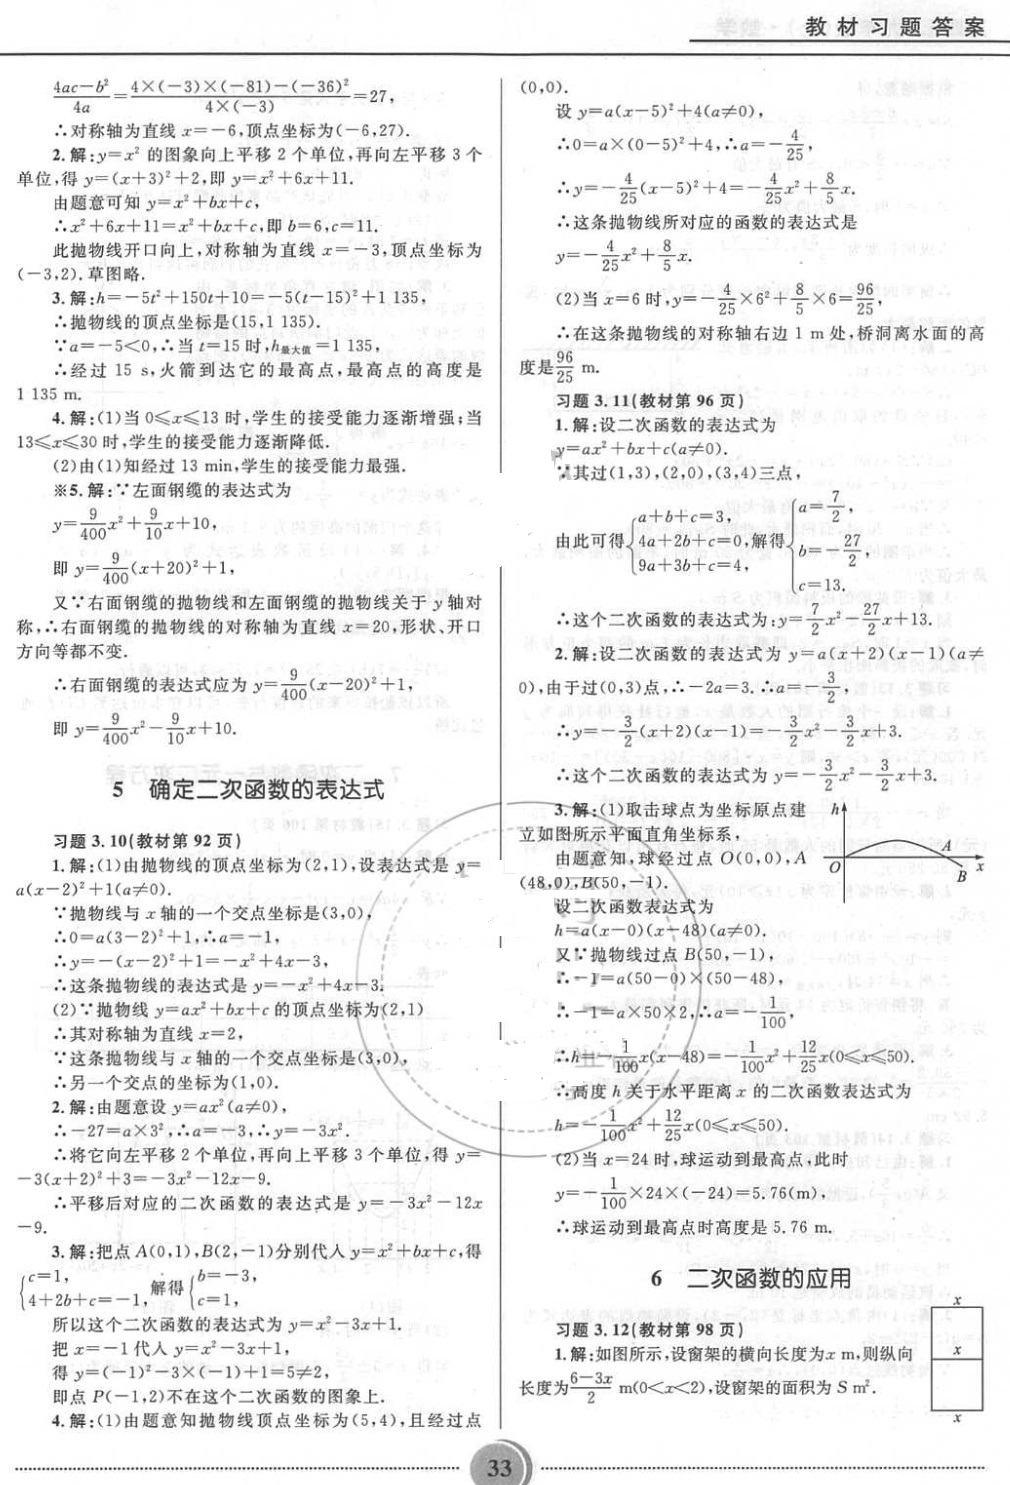 教材习题答案
(4ac-b²)/(4a)=(4×(-3)×(-81)-(-36)²)/(4×(-3))=27,
∴对称轴为直线 x=-6,顶点坐标为(-6,27).
2.解:y=x² 的图象向上平移 2 个单位,再向左平移 3 个
单位,得 y=(x+3)²+2,即 y=x²+6x+11.
由题意可知 y=x²+bx+c,
∴x²+6x+11=x²+bx+c,即 b=6,c=11.
此抛物线开口向上,对称轴为直线 x=-3,顶点坐标为
(-3,2).草图略.
3.解:h=-5t²+150t+10=-5(t-15)²+1 135,
∴抛物线的顶点坐标是(15,1 135).
∵a=-5<0,∴当 t=15 时,h最大值=1 135,
∴经过 15 s,火箭到达它的最高点,最高点的高度是
1 135 m.
4.解:(1)当 0≤x≤13 时,学生的接受能力逐渐增强;当
13≤x≤30 时,学生的接受能力逐渐降低.
(2)由(1)知经过 13 min,学生的接受能力最强.
※5.解:∵左面钢缆的表达式为
y=9/400x²+9/10x+10,
即 y=9/400(x+20)²+1,
又∵右面钢缆的抛物线和左面钢缆的抛物线关于 y 轴对
称,∴右面钢缆的抛物线的对称轴为直线 x=20,形状、开口
方向等都不变.
∴右面钢缆的表达式应为 y=9/400(x-20)²+1,
即 y=9/400x²-9/10x+10.
5 确定二次函数的表达式
习题 3.10(教材第 92 页)
1.解:(1)由抛物线的顶点坐标为(2,1),设表达式是 y=
a(x-2)²+1(a≠0).
∵抛物线与 x 轴的一个交点坐标是(3,0),
∴0=a(3-2)²+1,∴a=-1,
∴y=-(x-2)²+1=-x²+4x-3,
∴这条抛物线的表达式是 y=-x²+4x-3.
(2)∵抛物线 y=ax²+bx+c 的顶点坐标为(2,1)
∴其对称轴为直线 x=2,
∵这条抛物线与 x 轴的一个交点坐标是(3,0),
∴另一个交点的坐标为(1,0).
2.解:由题意设 y=ax²(a≠0),
∴-27=a×3²,∴a=-3,∴y=-3x².
∴将它向左平移 2 个单位,再向上平移 3 个单位,得 y=
-3(x+2)²+3=-3x²-12x-9.
∴平移后对应的二次函数的表达式是 y=-3x²-12x
-9.
3.解:把点 A(0,1),B(2,-1)分别代入 y=x²+bx+c,得
{c=1, 4+2b+c=-1, 解得 {b=-3, c=1,
所以这个二次函数的表达式为 y=x²-3x+1.
把 x=-1 代入 y=x²-3x+1,
得 y=(-1)²-3×(-1)+1=5≠2,
即点 P(-1,2)不在这个二次函数的图象上.
4.解:(1)由题意知抛物线顶点坐标为(5,4),且经过点
(0,0).
设 y=a(x-5)²+4(a≠0),
∴0=a×(0-5)²+4,∴a=-4/25,
∴y=-4/25(x-5)²+4=-4/25x²+8/5x.
∴这条抛物线所对应的函数的表达式是
y=-4/25x²+8/5x.
(2)当 x=6 时,y=-4/25×6²+8/5×6=96/25,
∴在这条抛物线的对称轴右边 1 m 处,桥洞离水面的高
度是96/25 m.
习题 3.11(教材第 96 页)
1.解:设二次函数的表达式为
y=ax²+bx+c(a≠0).
∵其过(1,3),(2,0),(3,4)三点,
由此可得{a+b+c=3, 4a+2b+c=0, 9a+3b+c=4, 解得{a=7/2, b=-27/2, c=13.
∴这个二次函数的表达式为:y=7/2x²-27/2x+13.
2.解:设二次函数的表达式为 y=a(x+2)(x-1)(a≠
0),由于过(0,3)点,∴-2a=3.∴a=-3/2,
∴y=-3/2(x+2)(x-1)=-3/2x²-3/2x+3.
∴这个二次函数的表达式为 y=-3/2x²-3/2x+3.
3.解:(1)取击球点为坐标原点建
立如图所示平面直角坐标系,
由题意知,球经过点 O(0,0),A
(48,0),B(50,-1).
h
O
A
B
x
设二次函数表达式为
h=a(x-0)(x-48)(a≠0).
又∵抛物线过点 B(50,-1),
∴-1=a(50-0)×(50-48),
∴-1=a×50×2,∴a=-1/100,
∴h=-1/100x(x-48)=-1/100x²+12/25x(0≤x≤50).
∴高度 h 关于水平距离 x 的二次函数表达式为
h=-1/100x²+12/25x(0≤x≤50).
(2)当 x=24 时,球运动到最高点,此时
y=-1/100×24×(-24)=5.76(m),
∴球运动到最高点时高度是 5.76 m.
6 二次函数的应用
习题 3.12(教材第 98 页)
1.解:如图所示,设窗架的横向长度为x m,则纵向
长度为(6-3x)/2 m(0<x<2),设窗架的面积为 S m².
x
x
x
33